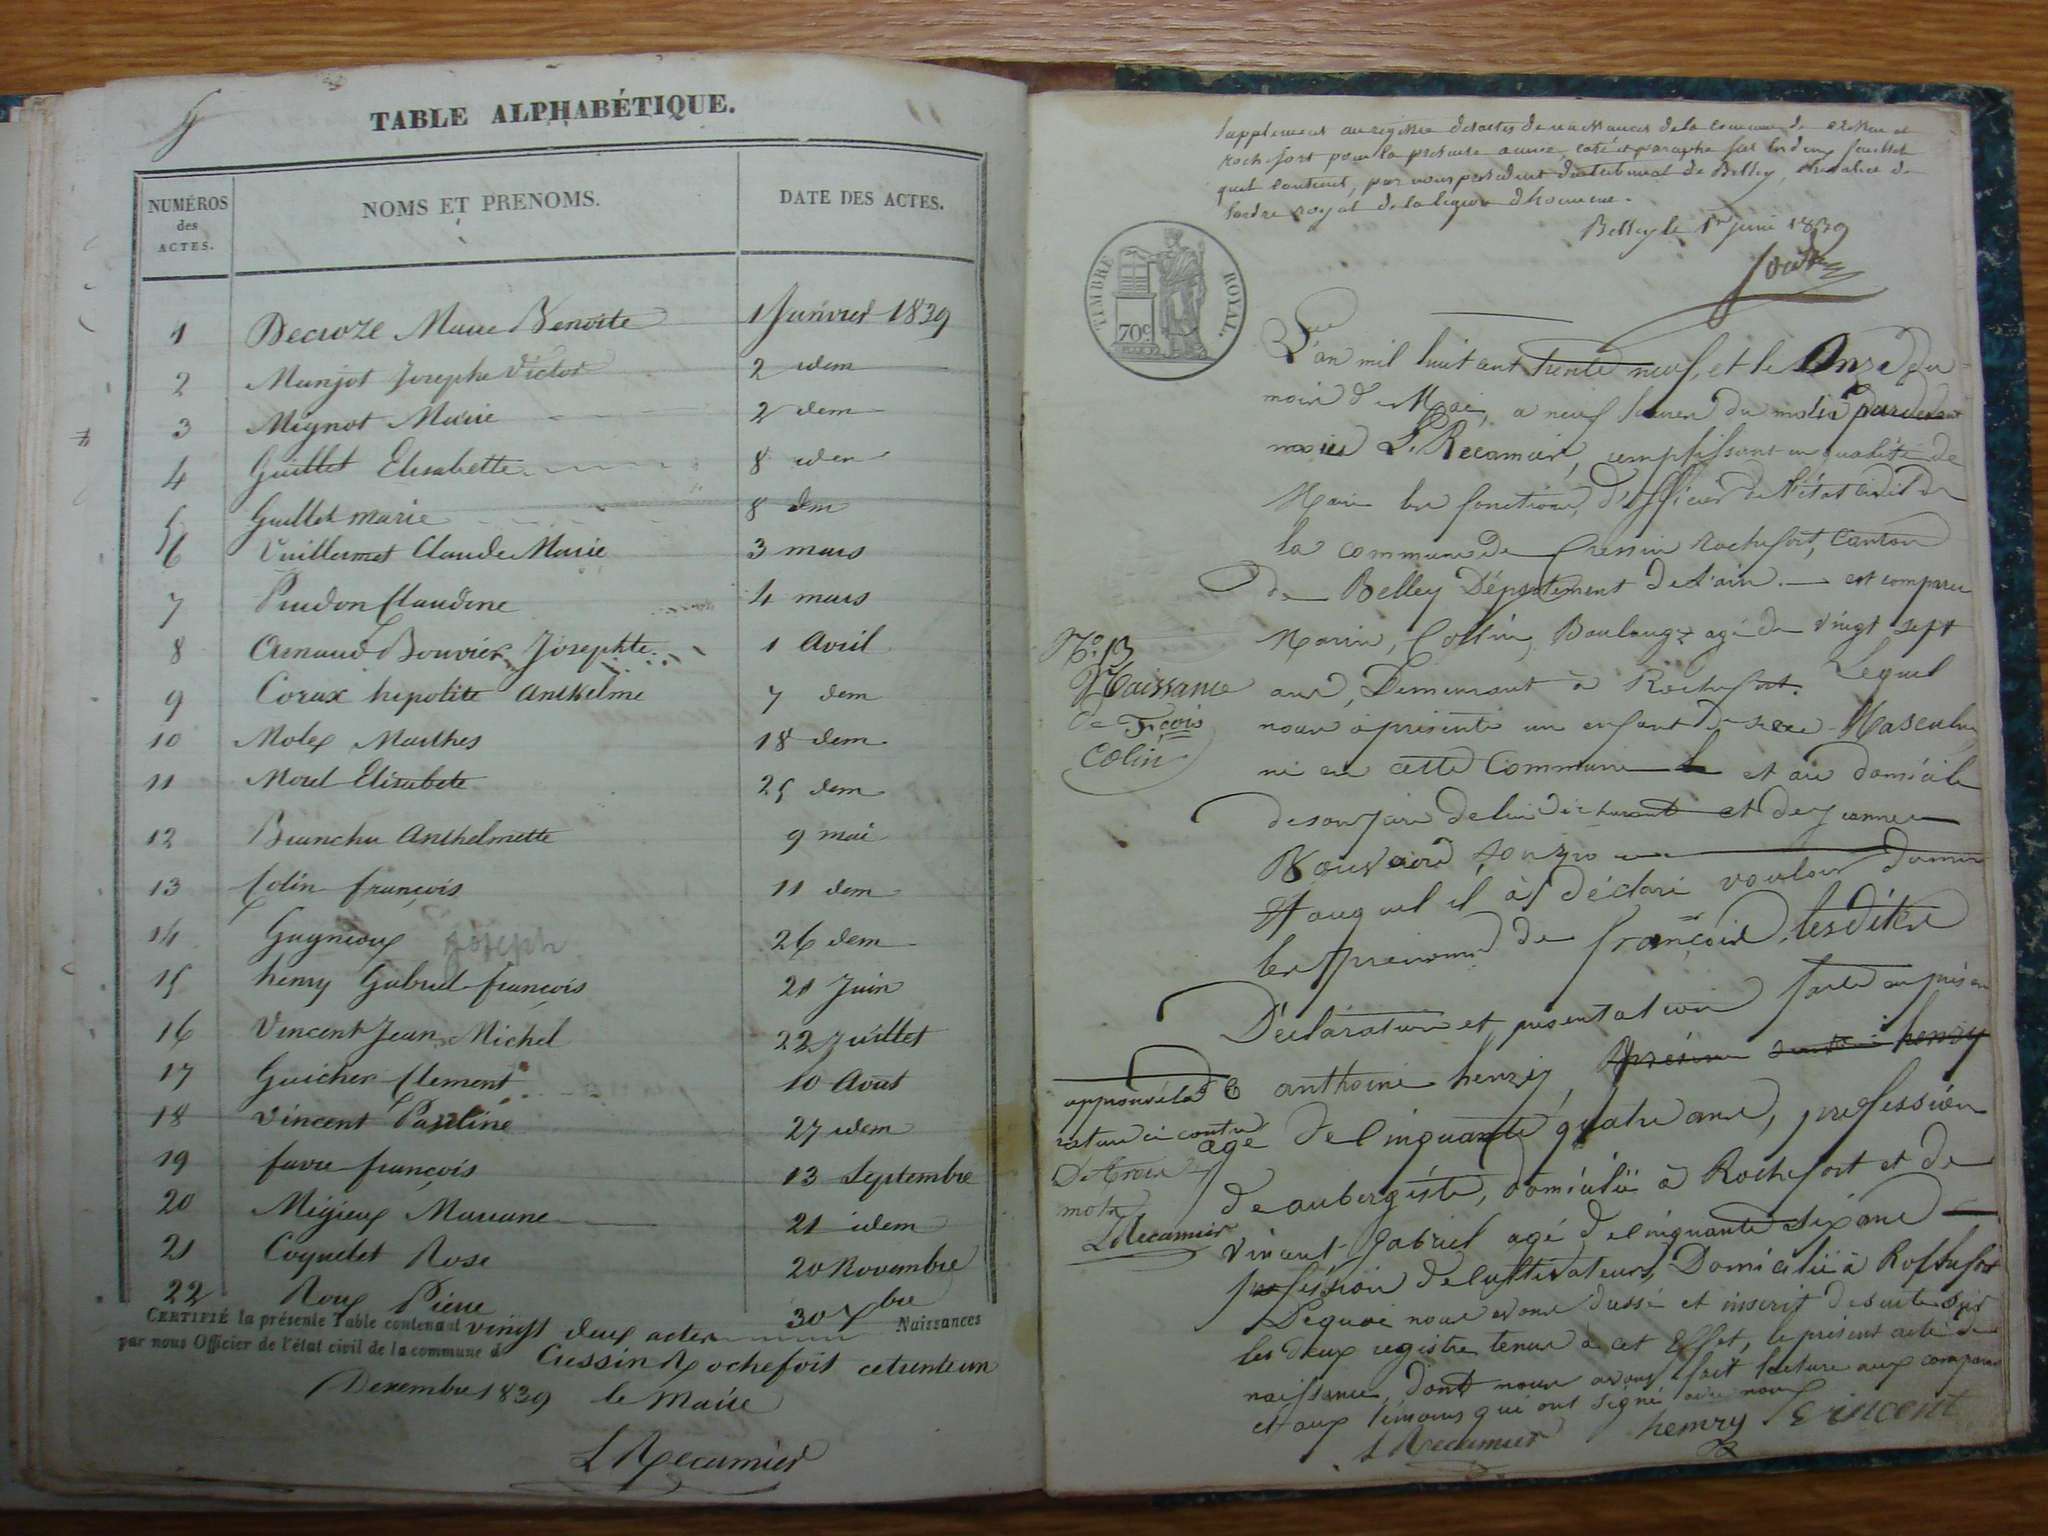 TABLE ALPHABÉTIQUE.
NUMÉROS des ACTES.
NOMS ET PRENOMS.
DATE DES ACTES.
1 Decroze Marie Benoite 1 Janvier 1839
2 Manjot Josephe Victor 2 idem
3 Mignot Marie 2 dem
4 Guillet Elisabette 8 idem
5 Guillet marie 8 dem
6 Vuillermet Claude Marie 3 mars
7 Claudine 4 mars
8 Arnaud Bouvier Josephte 1 Avril
9 Corax hipolite Anthelme 7 dem
10 Molex Marthes 18 dem
11 Morel Elisabete 25 dem
12 Anthelmette 9 mai
13 Colin françois 11 dem
14 Gagnieux Joseph 26 dem
15 henry Gabriel françois 21 Juin
16 Vincent Jean Michel 22 Juillet
17 Guicher Clement 10 Août
18 Vincent Pauline 27 idem
19 favre françois 13 Septembre
20 Migieux Mariane 21 idem
21 Coquelet Rose 20 Novembre
22 Roux Pierre 30 Xbre
CERTIFIÉ la présente Table contenant vingt deux actes Naissances
par nous Officier de l'état civil de la commune d Cressin Rochefort ce trente un
Decembre 1839 le Maire
L Recamier
Supplement au registre des actes de naissances de la commune de Cressin et
rochefort pour la présente année, coté et paraphé sur les deux feuillets
quil contient, par nous president du tribunal de Belley, chevalier de
lordre royal de la legion dhonneur.
Belley le 1er juin 1839
TIMBRE ROYAL.
70c
L'an mil huit cent trente neuf, et le Onze du
mois de Mai, a neuf heures du matin pardevant
nous L. Recamier, remplissant en qualité de
Maire les fonctions d'officier de l'état civil de
la commune de Cressin Rochefort, Canton
de Belley Département de l'ain. est comparu
Marin, Collin, Boulanger agé de vingt sept
ans, Demeurant à Rochefort. Lequel
nous a présenté un enfant de sexe Masculin
né en cette Commune et au domicile
de son père de lui déclarant et de Jeanne
auquel il a déclaré vouloir donner
les prenoms de françois, lesdites
Declaration et presentation faite en présence
anthoine henry, henry
age de cinquante quatre ans, profession
de aubergiste, domicilié à Rochefort et de
Vincent Gabriel agé de cinquante six ans
profession de cultivateur, Domicilié à Rochefort
De quoi nous avons dressé et inscrit de suite sur
les deux registre tenus à cet Effet, le présent acte de
naissance, dont nous avons fait lecture aux comparant
et aux témoins qui ont signé avec nous
L Recamier henry Vincent
No. 13
Naissance
de Fçois
Colin
approuvé la
rature ci contre
De trois
mots
L Recamier